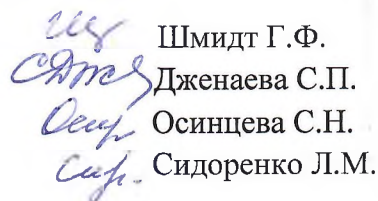 Шмидт Г.Ф.
Дженаева С.П.
Осинцева С.Н.
Сидоренко Л.М.